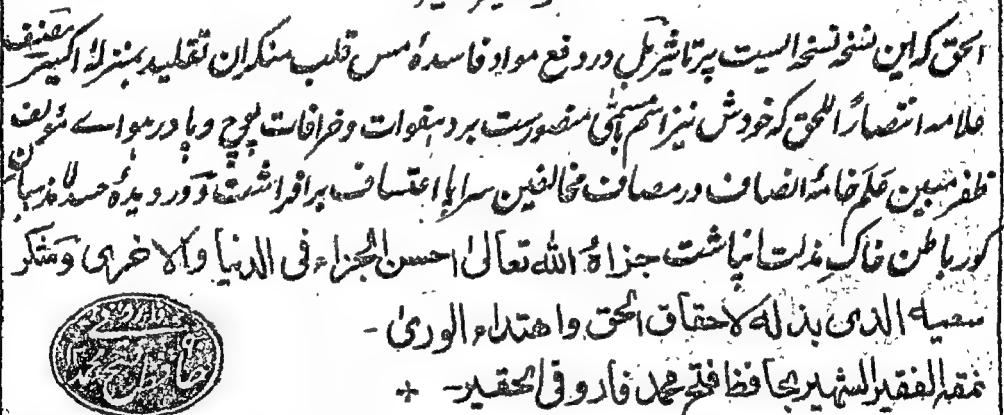 الحق که این نسخه نسخه ایست پر تاثیر بل در دفع مواد فاسدهٔ مس قلب منکران تقلید بمنزلهٔ اکسیر مصنف
علامه انتصاراً للحق که خودش نیز اسم بامسمی منصورست برد هفوات و خرافات پوچ و پا در هوای مؤلف
ظفر مبین علم خامهٔ انصاف در مصاف مخالفین سراپا اعتساف برافراشت و در دیدهٔ حسد
کور باطن خاک مذلت انباشت جزاه الله تعالیٰ احسن الجزاء فی الدنیا والاخری وشکر
سعیه الذی بذله لاحقاق الحق واهتداء الوریٰ -
نمقه الفقیر الشهیر بحافظ فتح محمد فاروقی الحقیر -